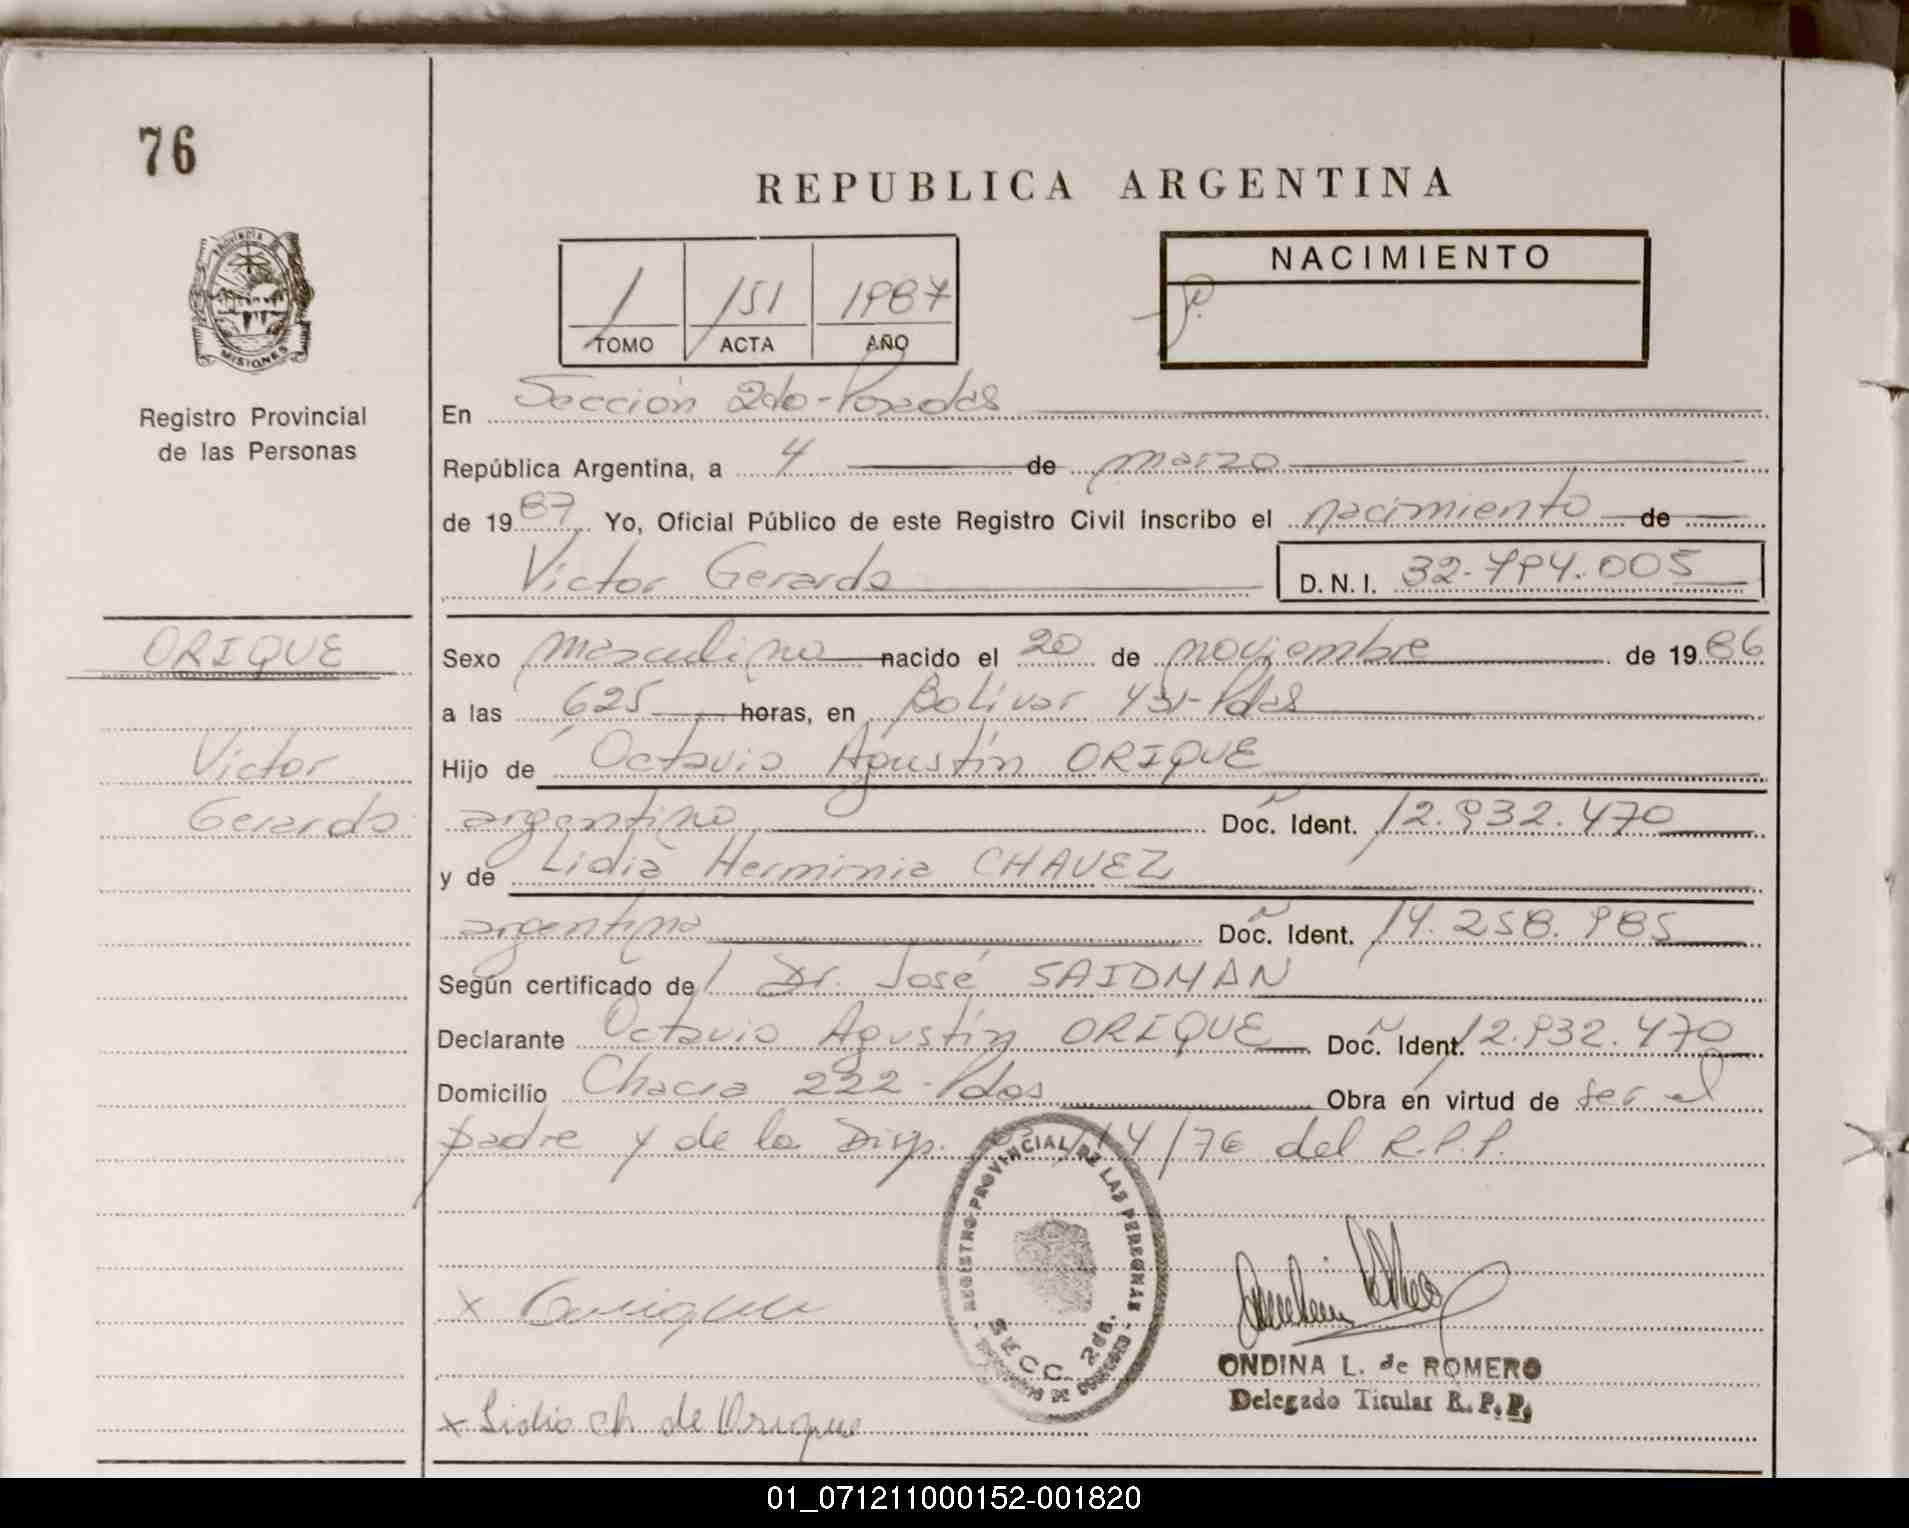 76
REPUBLICA ARGENTINA
NACIMIENTO
1 151 1987
TOMO ACTA AÑO
MISIONES
Registro Provincial
de las Personas
En Sección 2da-Posadas
República Argentina, a 4 de marzo
de 1987 Yo, Oficial Público de este Registro Civil inscribo el nacimiento de
Victor Gerardo D.N.I. 32.794.005
ORIQUE
Victor
Gerardo
Sexo masculino nacido el 20 de noviembre de 1986
a las 625 horas, en Bolivar 431-Pdas
Hijo de Octavio Agustín ORIQUE
argentino Doc. Ident. 12.932.470
y de Lidia Herminia CHAVEZ
argentina Doc. Ident. 14.258.985
Según certificado de Dr. José SAIDMAN
Declarante Octavio Agustín ORIQUE Doc. Ident. 12.932.470
Domicilio Chacra 222-Pdas Obra en virtud de ser el
padre y de la Disp. 14/76 del R.P.P.
REGISTRO PROVINCIAL DE LAS PERSONAS
SECC. 2da.
x Orique
ONDINA L. de ROMERO
Delegado Titular R.P.P.
x Lidia Ch. de Orique
01_071211000152-001820